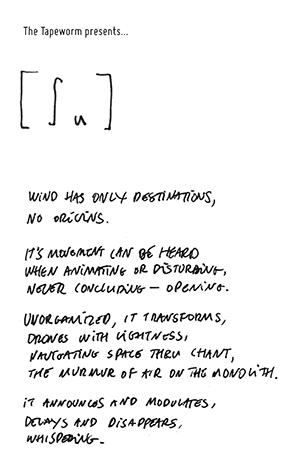 The Tapeworm presents...
[ ∫ u ]
WIND HAS ONLY DESTINATIONS,
NO ORIGINS.
IT'S MOVEMENT CAN BE HEARD
WHEN ANIMATING OR DISTURBING,
NEVER CONCLUDING – OPENING.
UNORGANIZED, IT TRANSFORMS,
DRONES WITH LIGHTNESS,
NAVIGATING SPACE THRU CHANT,
THE MURMUR OF AIR ON THE MONOLITH.
IT ANNOUNCES AND MODULATES,
DELAYS AND DISAPPEARS,
WHISPERING.